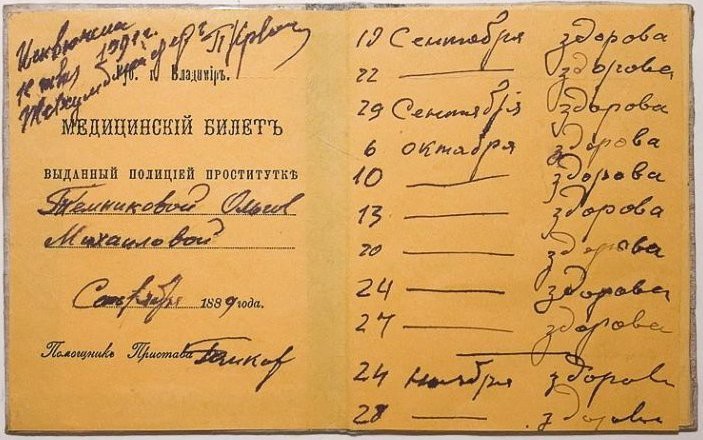 Губ. г. Владимiръ.
МЕДИЦИНСКIЙ БИЛЕТЪ
ВЫДАННЫЙ ПОЛИЦIЕЙ ПРОСТИТУТКѢ
Темниковой Ольгѣ
Михаиловой
Сентября 1889 года.
Помощникъ Пристава
19 Сентября здорова
22 — здорова
29 Сентября здорова
6 октября здорова
10 — здорова
13 — здорова
20 — здорова
24 — здорова
27 — здорова
24 ноября здорова
28 — здорова